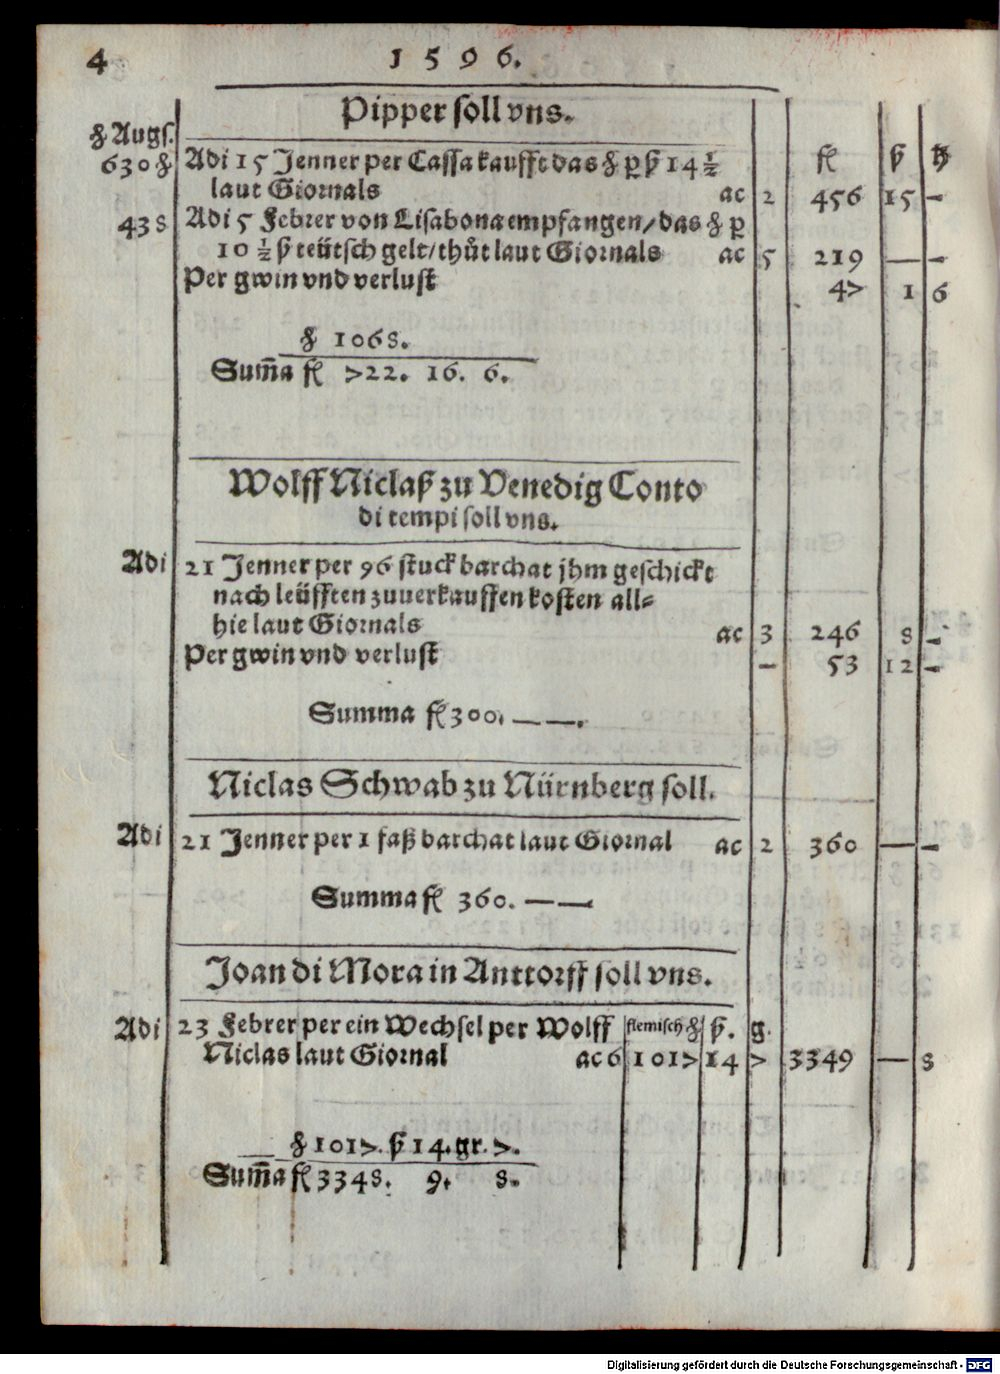 4 1596.
Pipper soll vns.
℔ Augs.
630 ℔ Adi 15 Jenner per Cassa kaufft das ℔ p ß 14 1/2 fl ß hl
laut Giornals ac 2 456 15 —
438 Adi 5 Febrer von Lisabona empfangen/ das ℔ p
10 1/2 ß teütsch gelt/ thůt laut Giornals ac 5 219 — —
Per gwin vnd verlust 47 1 6
℔ 1068.
Sum̄a fl 722. 16. 6.
Wolff Niclaß zu Venedig Conto
di tempi soll vns.
Adi 21 Jenner per 96 stuck barchat jhm geschickt
nach leüfften zuuerkauffen kosten all⸗
hie laut Giornals ac 3 246 8 —
Per gwin vnd verlust — 53 12 —
Summa fl 300. — —.
Niclas Schwab zu Nürnberg soll.
Adi 21 Jenner per 1 faß barchat laut Giornal ac 2 360 — —
Summa fl 360. — —
Joan di Mora in Anttorff soll vns.
Adi 23 Febrer per ein Wechsel per Wolff flemisch ℔ ß. g.
Niclas laut Giornal ac 6 1017 14 7 3349 — 8
℔ 1017. ß 14. gr. 7.
Sum̄a fl 3348. 9. 8.
Digitalisierung gefördert durch die Deutsche Forschungsgemeinschaft - DFG